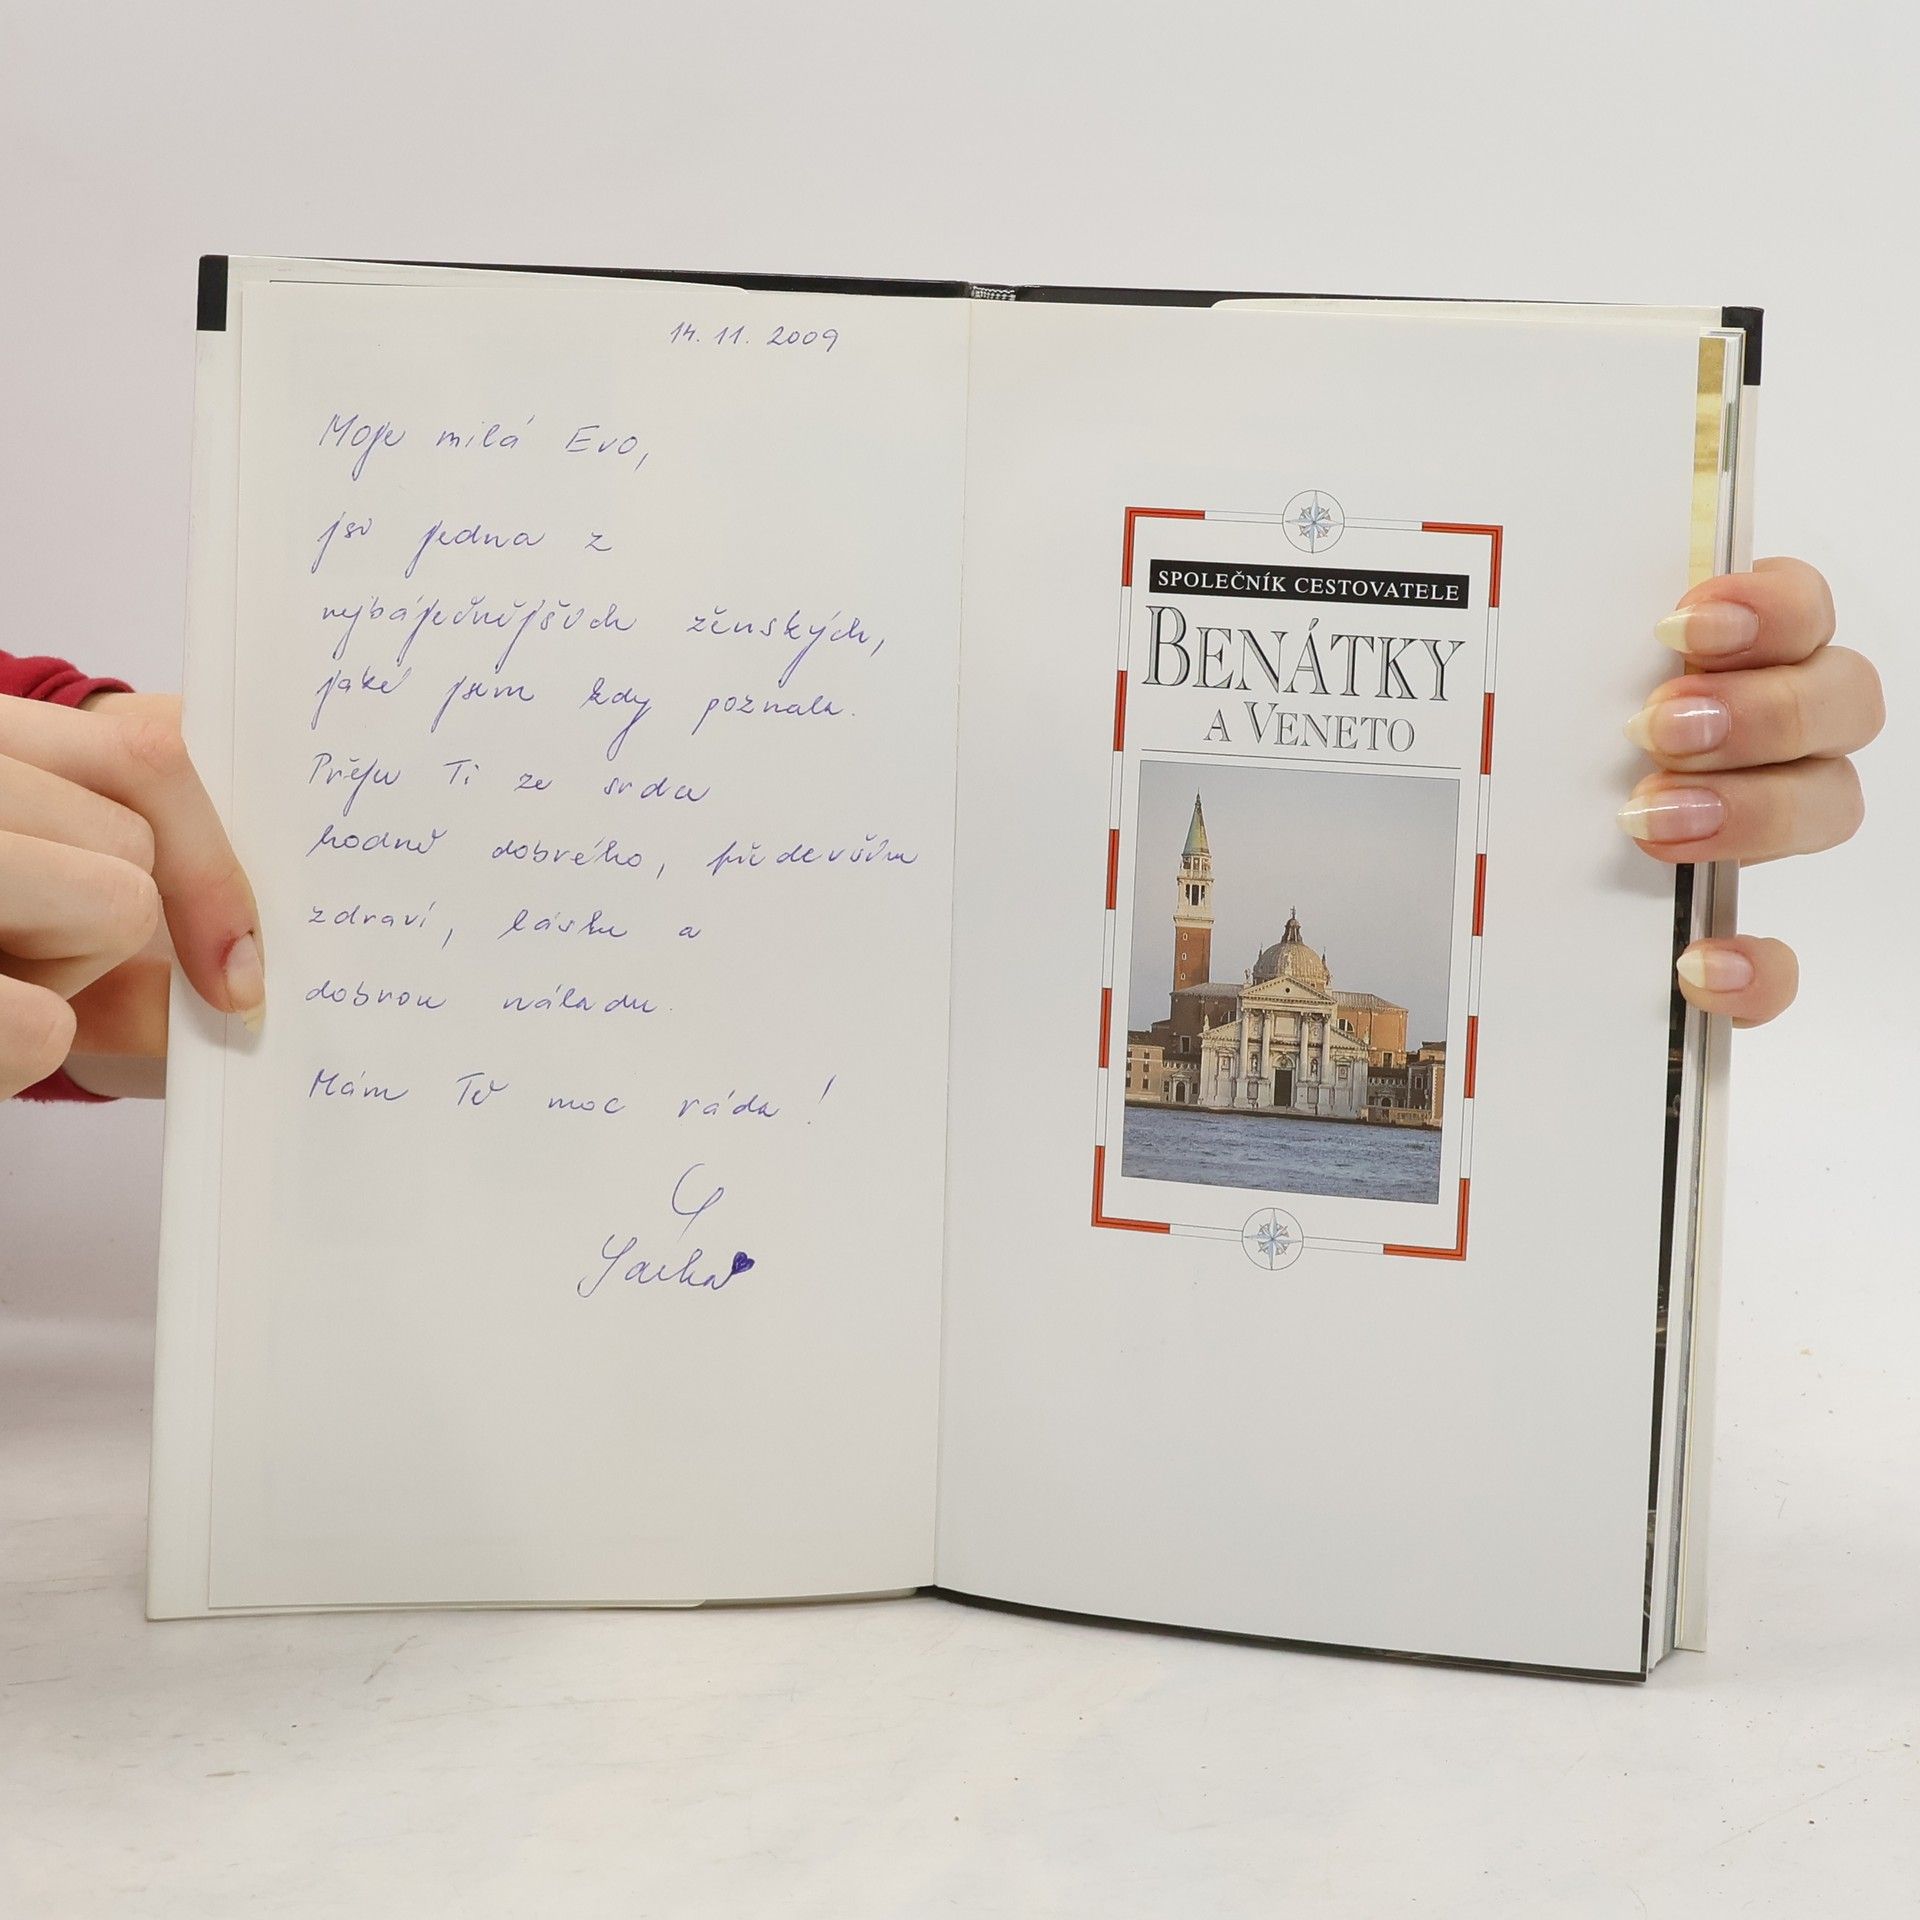 14. 11. 2009
Moje milá Evo,
jsi jedna z
nejbáječnějších ženských,
jaké jsem kdy poznala.
Přeju Ti ze srdce
hodně dobrého, především
zdraví, lásku a
dobrou náladu.
Mám Tě moc ráda!
SPOLEČNÍK CESTOVATELE
BENÁTKY
A VENETO